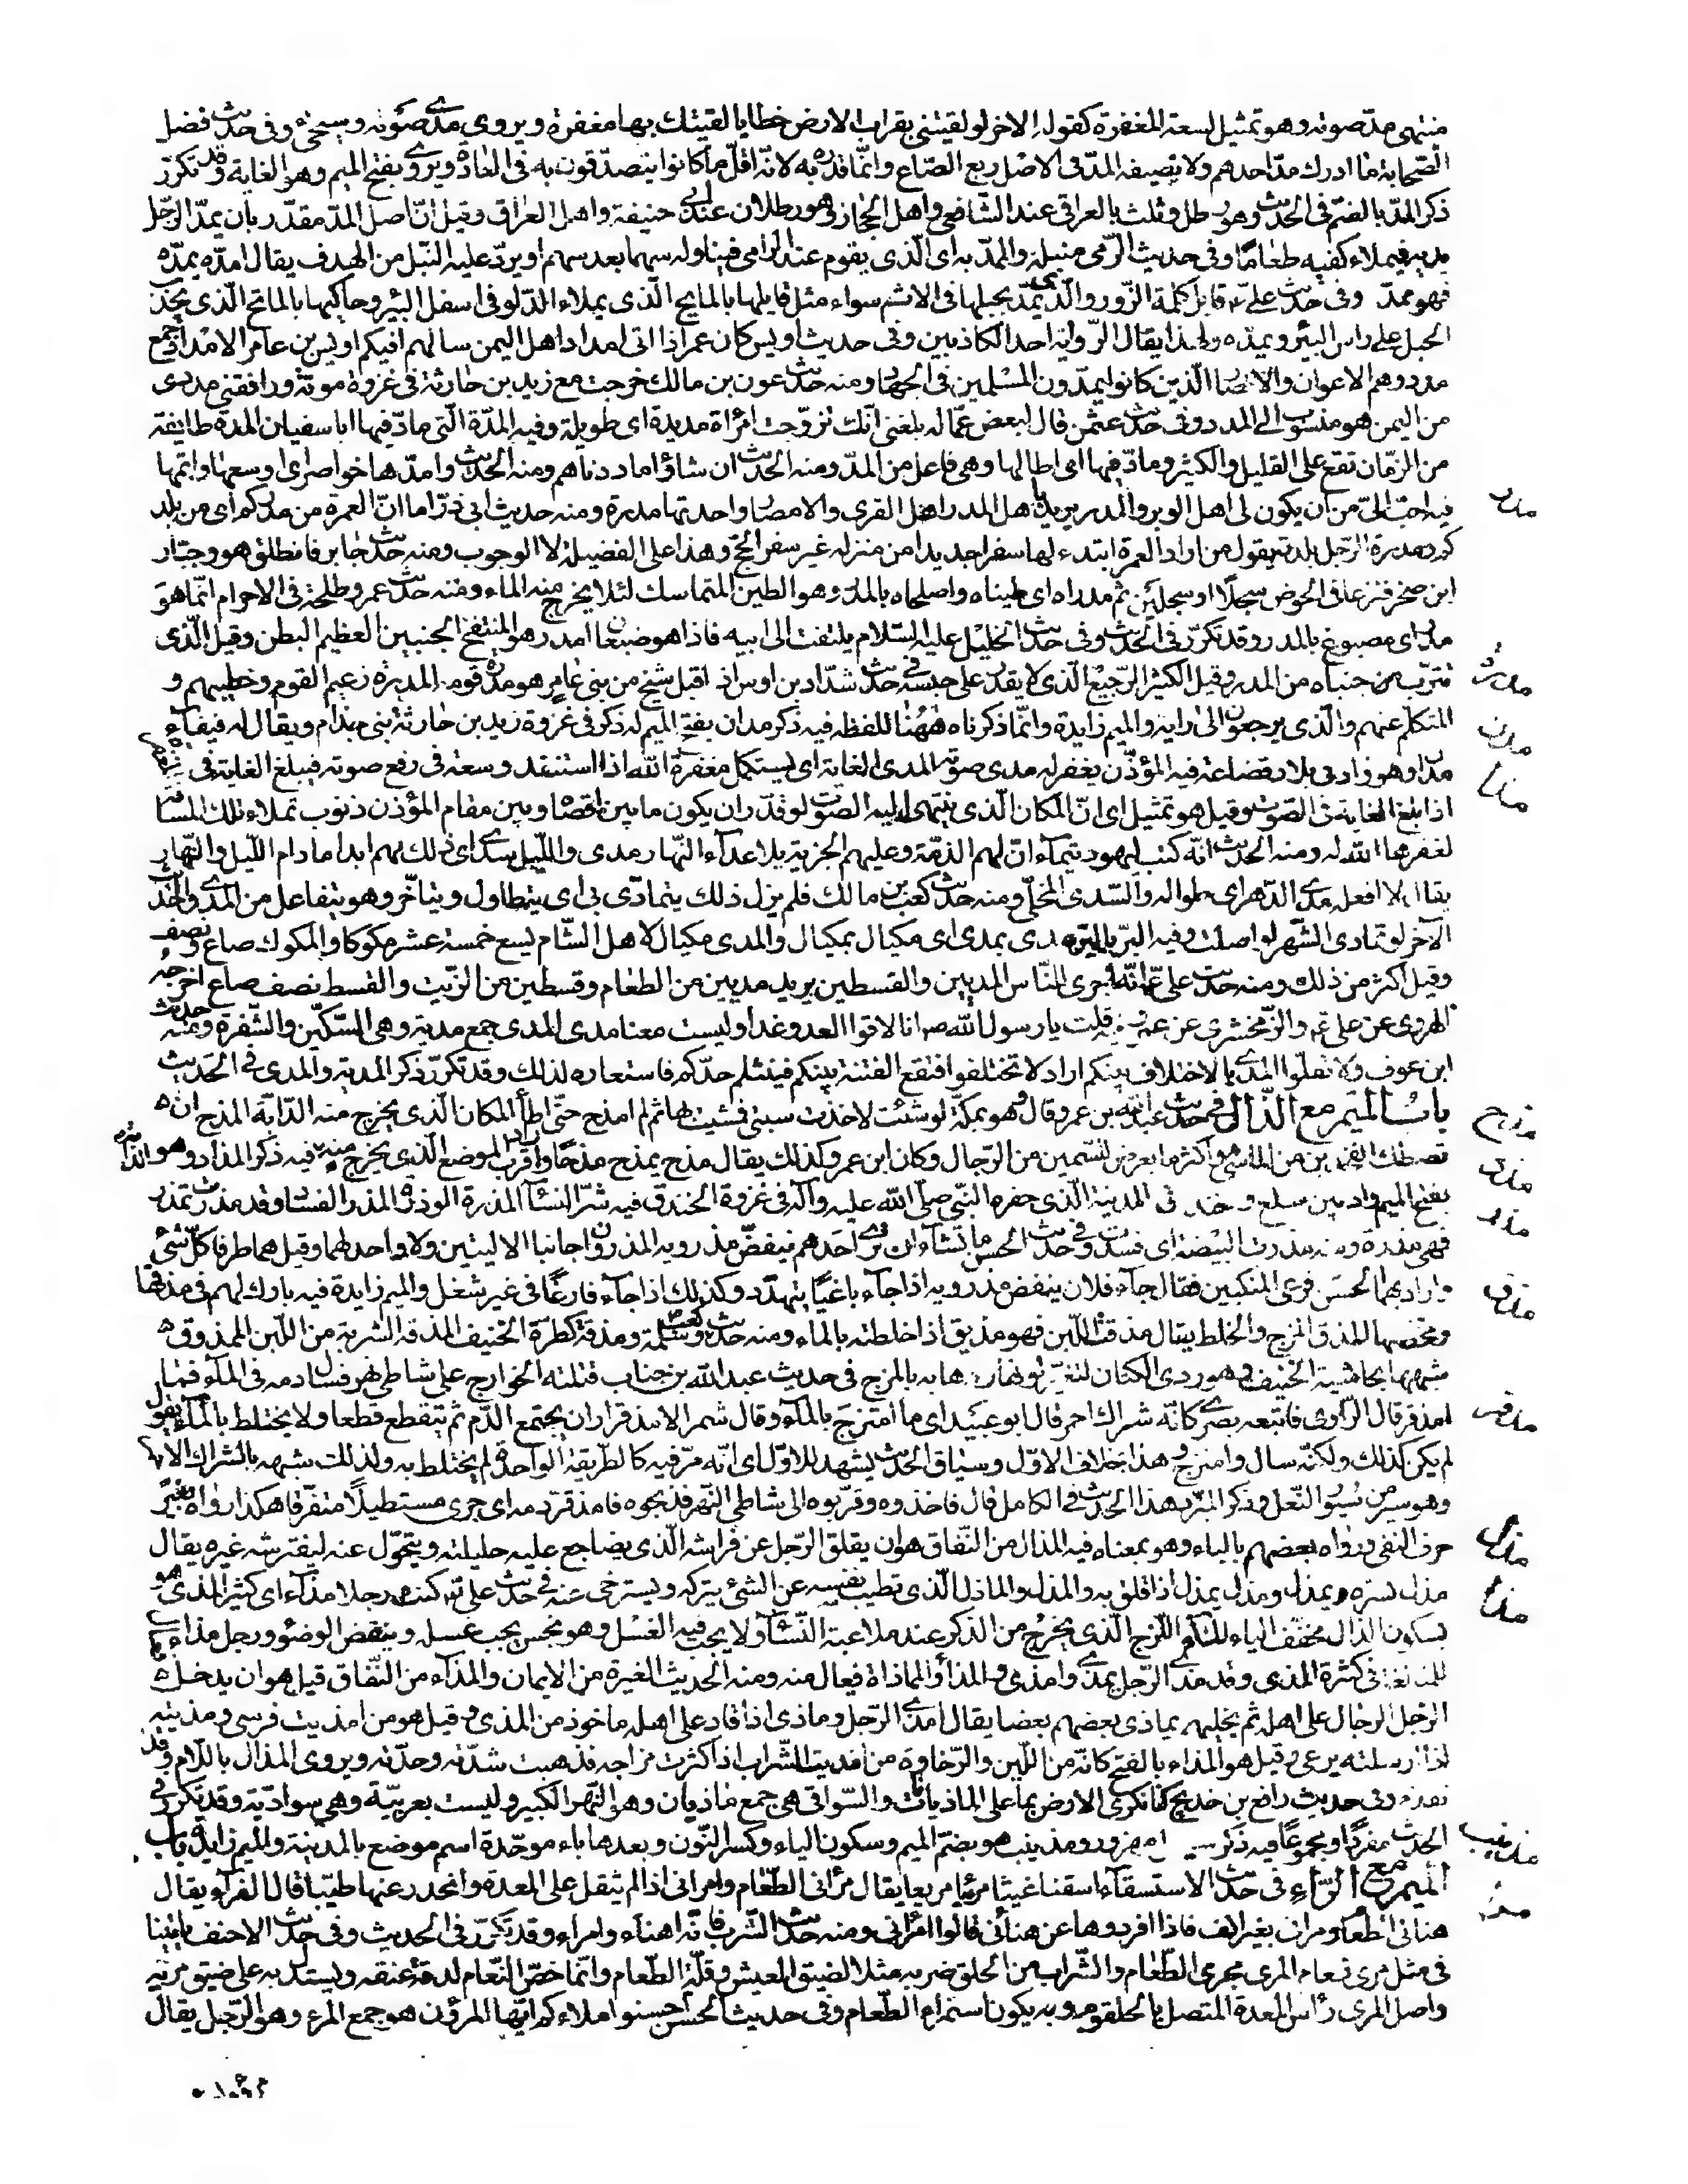 منتهى مدّ صوته وهو تمثيل لسعة المغفرة كقوله الاخر لو لقيتني بقراب الارض خطايا لقيتك بها مغفرة ويروى مدى صوته وسيجئ وفى حديث فضل
الصّحابة ما ادرك مدّ احدهم ولا نصيفه المدّ فى الاصل ربع الصّاع وانّما قدره به لانّه اقلّ ما كانوا يتصدّقون به فى العادة ويروى بفتح الميم وهو الغاية وقد تكرّر
ذكر المدّ بالضّم فى الحديث وهو رطل وثلث بالعراقى عند الشّافعى واهل الحجاز وهو رطلان عند ابى حنيفة واهل العراق وقيل انّ اصل المدّ مقدّر بان يمدّ الرّجل
يديه فيملاء كفّيه طعامًا وفى حديث الرّمى منبله والممدّ به اى الّذى يقوم عند الرّامى فيناوله سهما بعد سهم او يردّ عليه النّبل من الهدف يقال امدّه يمدّه
فهو ممدّ وفى حديث علىّ قايل كلمة الزّور والّذى يمدّ بحبلها فى الاثم سواء مثل قايلها بالمايح الّذى يملاء الدّلو فى اسفل البئر وحاكيها بالماتح الّذى يجذب
الحبل على راس البئر ويمدّه ولهذا يقال الرّواية احد الكاذبين وفى حديث اويس كان عمر اذا اتى امداد اهل اليمن سالهم افيكم اويس بن عامر الامداد جمع
مدد وهم الاعوان والانصار الّذين كانوا يمدّون المسلمين فى الجهاد ومنه حديث عون بن مالك خرجت مع زيد بن حارثة فى غزوة موتة ورافقنى مددى
من اليمن هو منسوب الى المدد وفى حديث عثمن قال لبعض عمّاله بلغنى انّك تزوّجت امرأة مديدة اى طويلة وفيه المدّة الّتى مادّ فيها ابا سفيان المدة طايفة
من الزّمان تقع على القليل والكثير ومادّ فيها اى اطالها وهى فاعل من المدّ ومنه الحديث ان شاؤا ماددناهم ومنه الحديث وامدّها خواصر اى اوسعها واتمّها
مدر
فيه احبّ الىّ من ان يكون لى اهل الوبر والمدر يريد باهل المدر اهل القرى والامصار واحدتها مدرة ومنه حديث ابى ذرّ اما انّ العمرة من مدركم اى من بلدكم
ومدرة الرّجل بلدته يقول من اراد العمرة ابتدء لها سفرا جديدا من منزله غير سفر الحجّ وهذا على الفضيلة لا الوجوب ومنه حديث جابر فانطلق هو وجبّار
ابن صخر فنزعا فى الحوض سجلًا او سجلين ثم مدراه اى طيناه واصلحاه بالمدر وهو الطين المتماسك لئلا يخرج منه الماء ومنه حديث عمرو طلحة فى الاحرام انّما هو
مدر اى مصبوغ بالمدر وقد تكرّر فى الحديث وفى حديث الخليل عليه السّلام يلتفت الى ابيه فاذا هو ضبعان امدر هو المنتفخ الجنبين العظيم البطن وقيل الّذى
مدره
تترّب جنباه من المدر وقيل الكثير الرّجيع الّذى لا يقدر على حبسه فى حديث شدّاد بن اوس اذ اقبل شيخ من بنى عامر هو مدره قومه المدره زعيم القوم وخطيبهم و
مدن
المتكلّم عنهم والّذى يرجعون الى رايه والميم زايدة وانّما ذكرناه ههنا للفظه فيه ذكر مدان بفتح الميم له ذكر فى غزوة زيد بن حارثة بنى جذام ويقال له فيفآء
مدا
مدان وهو واد فى بلاد قضاعة فيه المؤذّن يغفر له مدى صوته المدى الغاية اى يستكمل مغفرة الله اذا استنفد وسعه فى رفع صوته فيبلغ الغاية فى المغفرة
اذا بلغ الغاية فى الصّوت وقيل هو تمثيل اى انّ المكان الّذى ينتهى اليه الصّوت لو قدّر ان يكون ما بين اقصاه وبين مقام المؤذن ذنوب تملاء تلك المسافة
لغفرها الله له ومنه الحديث انّه كتب ليهود تيمآء انّ لهم الذمّة وعليهم الجزية بلا عدآء النّهار مدى واللّيل سدى اى ذلك لهم ابدا ما دام اللّيل والنّهار
يقال لا افعله مدى الدّهر اى طواله والسّدى المخلّى ومنه حديث كعب بن مالك فلم يزل ذلك يتمادى بى اى يتطاول ويتأخّر وهو يتفاعل من المدى والحديث
الآخر لو تمادى الشّهر لواصلت وفيه البرّ بالبرّ مدى بمدى اى مكيال بمكيال والمدى مكيال لاهل الشّام يسع خمسة عشر مكوكا والمكوك صاع ونصف
وقيل اكثر من ذلك ومنه حديث علىّ انّه اجرى للنّاس المديين والقسطين يريد مديين من الطعام وقسطين من الزّيت والقسط نصف صاع اخرجه
الهروى عن على والزّمخشرى عن عمر فيه قلت يا رسول الله انا لاقوا العدو غدا وليست معنا مدى المدى جمع مدية وهى السّكّين والشّفرة ومنه حديث
ابن عوف ولا تفلّوا المدى بالاختلاف بينكم اراد لا تختلفوا فتقع الفتنة بينكم فينثلم حدّكم فاستعاره لذلك وقد تكرّر ذكر المدية والمدى فى الحديث
مذح
باب الميم مع الذّال فى حديث عبد الله بن عمرو قال وهو بمكّة لو شئت لاخذت سبتى فمشيت بها ثم لم امذح حتّى اطأ المكان الّذى يخرج منه الدّابّة المذح ان
مذد
تصطك الفخذين من الماشى واكثر ما يعرض للسّمين من الرّجال وكان ابن عمرو كذلك يقال مذح يمذح مذحًا واراد قرب الموضع الّذى يخرج منه فيه ذكر المذاد وهو
مذر
بفتح الميم واد بين سلع وخندق المدينة الّذى حفره النّبى صلّى الله عليه وآله فى غزوة الخندق فيه شرّ النّسآء المذرة الوذرة المذر الفساد وقد مذرت تمذر
فهى مذرة ومنه مذرت البيضة اى فسدت وفى حديث الحسن ما تشآء ان ترى احدهم ينفضّ مذرويه المذروان جانبا الاليتين ولا واحد لهما وقيل هما طرفا كلّ شئ
مذق
واراد بهما الحسن فرعى المنكبين فقال جآء فلان ينفض مذرويه اذا جآء باغيًا يتهدّد وكذلك اذا جآء فارغًا فى غير شغل والميم زايدة فيه بارك لهم فى مذقها
ومحضها المذق المزج والخلط يقال مذقت اللّبن فهو مذيق اذا خلطته بالماء ومنه حديث كعب وسلمة ومذقة كطرّة الخنيف المذقة الشّربة من اللّبن الممذوق
مذقر
شبهها بحاشية الخنيف وهو ردى الكتان لتغيّر لونها وذهابه بالمزج فى حديث عبد الله بن خباب قتلته الخوارج على شاطئ نهر فسال دمه فى المآء فما
امذقر قال الرّاوى فاتبعه بصرى كانّه شراك احمر قال ابو عبيد اى ما امتزج بالمآء وقال شمر الامذقرار ان يجتمع الدّم ثم يتقطع قطعا ولا يختلط بالمآء يقول
لم يكن كذلك ولكنّه سال وامتزج وهذا بخلاف الاوّل وسياق الحديث يشهد للاوّل اى انّه مرّ فيه كالطّريقة الواحدة لم يختلط به ولذلك شبهه بالشّراك الاحمر
وهو سير من سيور النّعل وذكر المبرّد هذا الحديث فى الكامل قال فاخذوه وقرّبوه الى شاطئ النّهر فذبحوه فامذقرّ دمه اى جرى مستطيلًا متفرّقا هكذا رواه بغير
مذل
حرف النفى ورواه بعضهم بالباء وهو بمعناه فيه المذال من النّفاق هو ان يقلق الرّجل عن فراشه الّذى يضاجع عليه حليلته ويتحوّل عنه ليفترشه غيره يقال
مذا
مذل بسرّه يمذل ومذل يمذل اذا قلق به والمذل والماذل الّذى تطيب نفسه عن الشئ يتركه ويسترخى عنه فى حديث على كنت رجلا مذّآء اى كثير المذى هو
بسكون الذال مخفّف الياء البلل اللّزج الّذى يخرج من الذكر عند ملاعبة النّسآء ولا يجب فيه الغسل وهو نجس يجب غسله وينقض الوضوء ورجل مذاء فعال
للمبالغة فى كثرة المذى وقد مذى الرّجل يمذى وامذى والمذآء والماذاة فعال منه ومنه الحديث الغيرة من الايمان والمذآء من النّفاق قيل هو ان يدخل
الرّجل الرّجال على اهله ثم يخليهم يماذى بعضهم بعضا يقال امذى الرّجل وماذى اذا قاد على اهله ماخوذ من المذى وقيل هو من امذيت فرسى ومذيته
اذا ارسلته يرعى وقيل هو المذاء بالفتح كانّه من اللّين والرّخاوة من امذيت الشّراب اذا كثرت مزاجه فذهبت شدّته وحدّته ويروى المذال باللّام وقد
تقدّم وفى حديث رافع بن خديج كنا نكرى الارض بما على الماذيانات والسّواقى هى جمع ماذيان وهو النّهر الكبير وليست بعربيّة وهى سوادية وقد تكرّر فى
مذينب
الحديث مفردًا ومجموعًا فيه ذكر سيل مهزور ومذينب هو بضمّ الميم وسكون الياء وكسر النّون وبعدها باء موحّدة اسم موضع بالمدينة والميم زايدة باب
مرأ
الميم مع الرّاء فى حديث الاستسقآء اسقنا غيثا مريئا مريعا يقال مرأنى الطّعام وامرانى اذا لم يثقل على المعدة وانحدر عنها طيّبا قال الفرآء يقال
هنانى الطّعام ومرانى بغير الف فاذا افردوها عن هنأنى قالوا امرأنى ومنه حديث الشّرب فانّه اهناء وامراء وقد تكرّر فى الحديث وفى حديث الاحنف ياتينا
فى مثل مرئ نعام المرى مجرى الطّعام والشّراب من الحلق ضربه مثلا لضيق العيش وقلّة الطّعام وانّما خصّ النّعام لدقّة عنقه ويستدلّ به على ضيق مريّه
واصل المرى رأس المعدة المتصل بالحلقوم وبه يكون استمراء الطّعام وفى حديث الحسن احسنوا املاءكم ايّها المرؤن هو جمع المرء وهو الرّجل يقال